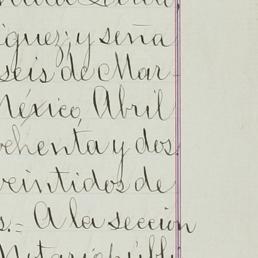 iguez; y seña
seis de Mar-
México, Abril
ochenta y dos.
veintidos de
s.= A la sección
Notario públi